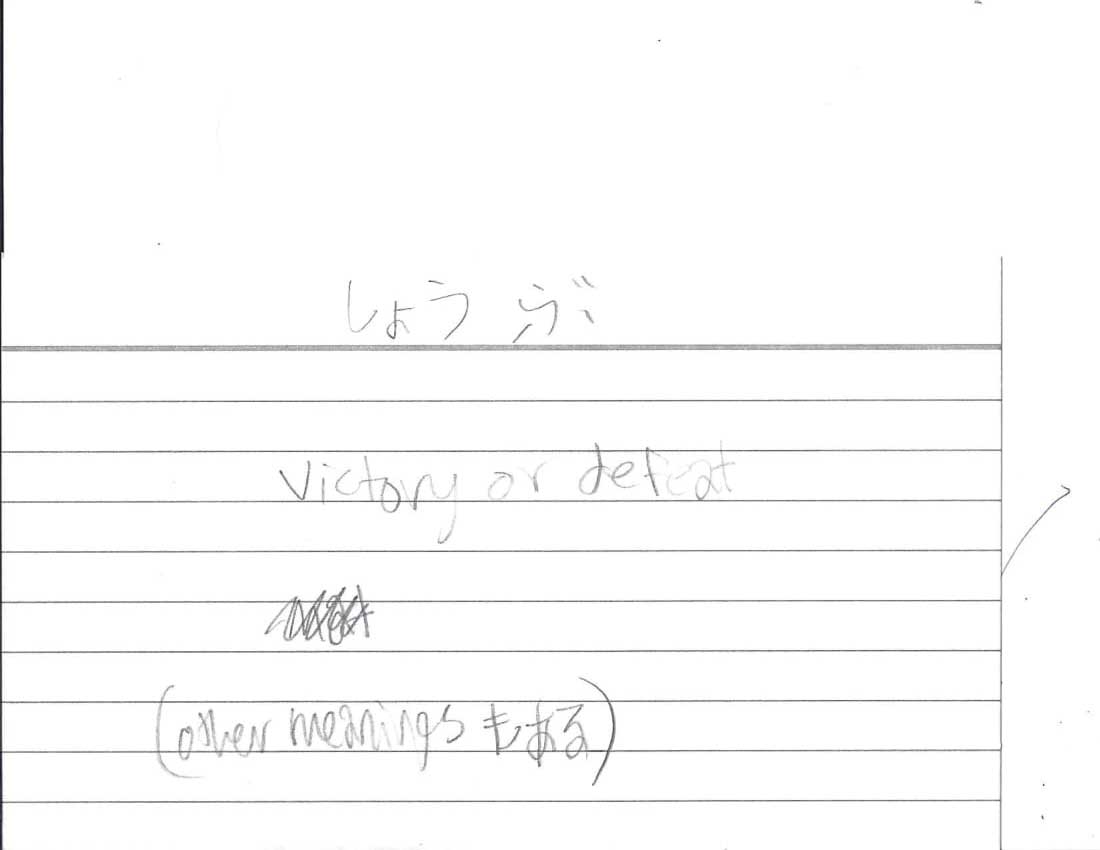 しょうぶ
Victory or defeat
(other meanings もある)